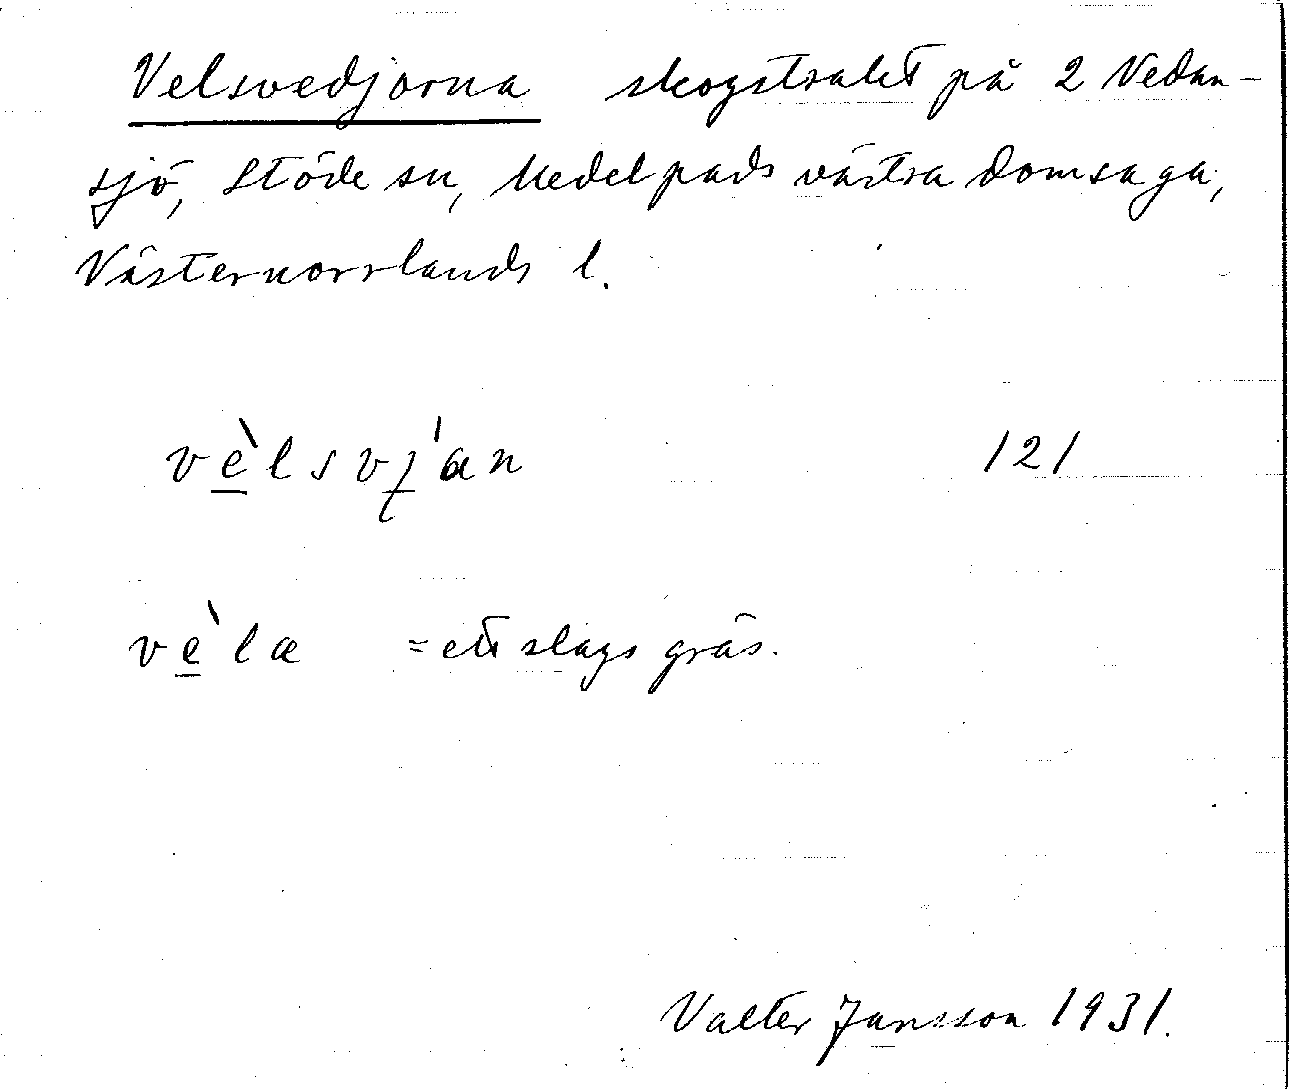 Velsvedjorna skogstrakt på 2 Nedan-
sjö, Stöde sn, Medelpads västra domsaga,
Västernorrlands l.
vè̲lsvɟ'an 121
vè̲la = ett slags gräs.
Valter Jansson 1931.